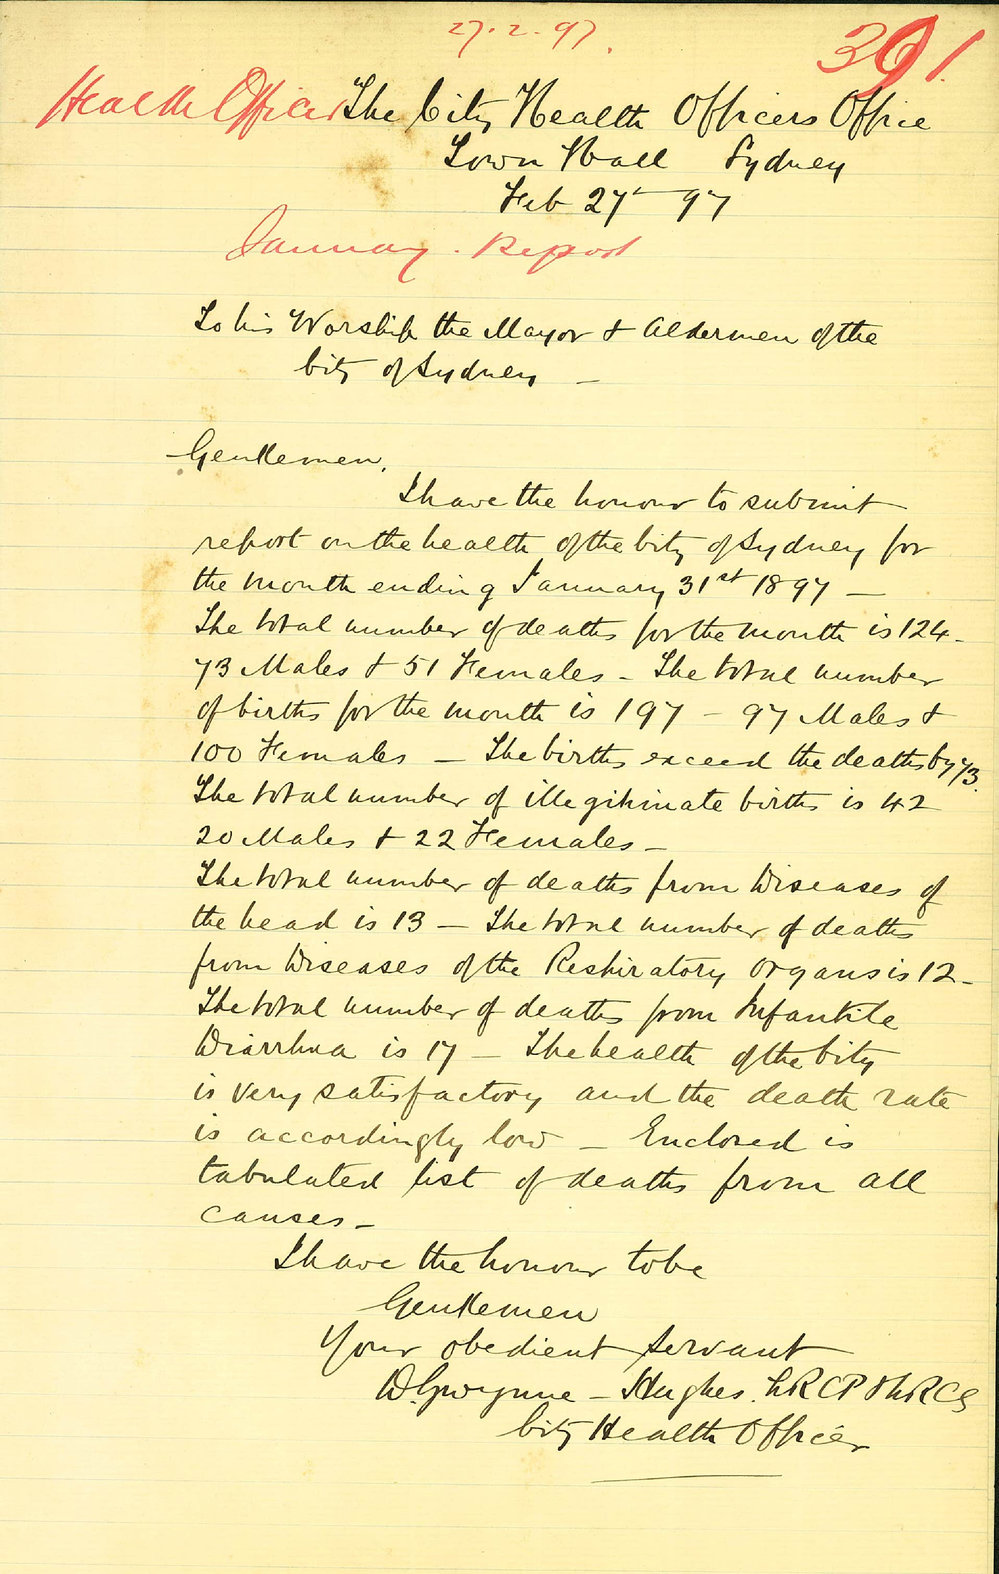 27.2.97.
391.
Health Officer
The City Health Officers Office
Town Hall Sydney
Feb 27th 97
January. Report
To his Worship the Mayor & Aldermen of the
City of Sydney —
Gentlemen,
I have the honour to submit
report on the health of the City of Sydney for
the month ending January 31st 1897 —
The total number of deaths for the month is 124 –
73 Males & 51 Females – The total number
of births for the month is 197 – 97 Males &
100 Females – The births exceed the deaths by 73.
The total number of illegitimate births is 42
20 Males & 22 Females –
The total number of deaths from Diseases of
the head is 13 – The total number of deaths
from Diseases of the Respiratory Organs is 12 –
The total number of deaths from Infantile
Diarrhœa is 17 – The health of the City
is very satisfactory and the death rate
is accordingly low – Enclosed is
tabulated list of deaths from all
causes –
I have the honour to be
Gentlemen
Your obedient servant
W. Gwynne – Hughes. LRCP & LRCS
City Health Officer